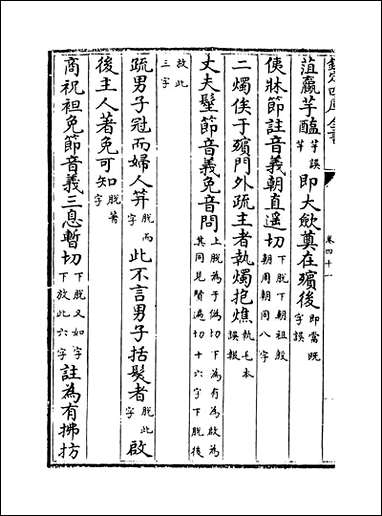 欽定四庫全書
卷四十一
菹蠃芋醢芋誤芋即大斂奠在殯後即當既字誤
侇牀節註音義朝直遥切下脱下朝祖殷朝周朝同八字
二燭俟于殯門外疏主者執燭抱燋執毛本誤報
丈夫髽節音義免音問上脱為于偽切下為有為啟為其同見賢遍切十六字下脱後放此三字
疏男子冠而婦人笄脱而字此不言男子括髮者脱此字啟
後主人著免可知脱著字
商祝袒免節音義三息暫切下脱又如字下放此六字註為有拂坊